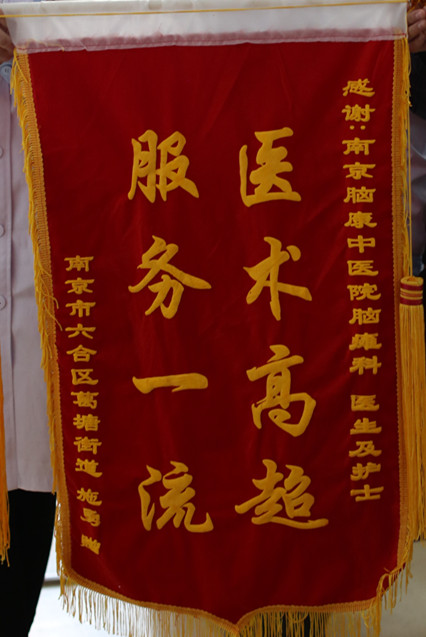 感谢:南京脑康中医院脑瘫科 医生及护士
医术高超
服务一流
南京市六合区葛塘街道 施勇 赠